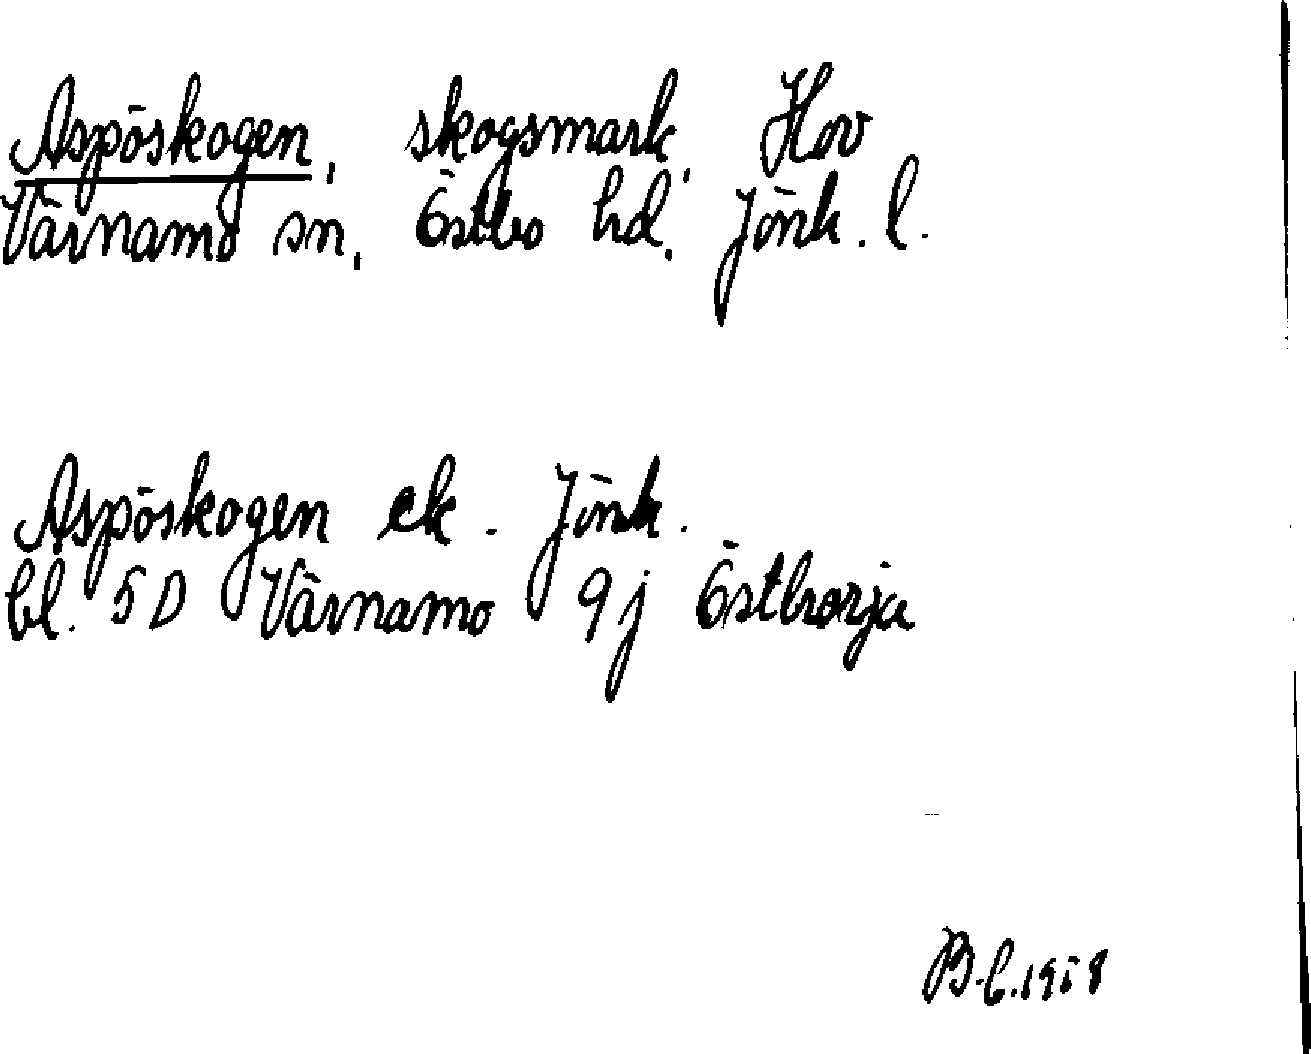 Aspöskogen, skogsmark, Hov
Värnamo sn, Östbo hd. Jönk. l.
Aspöskogen ek. Jönk.
bl. 5D Värnamo 9j Östhorja